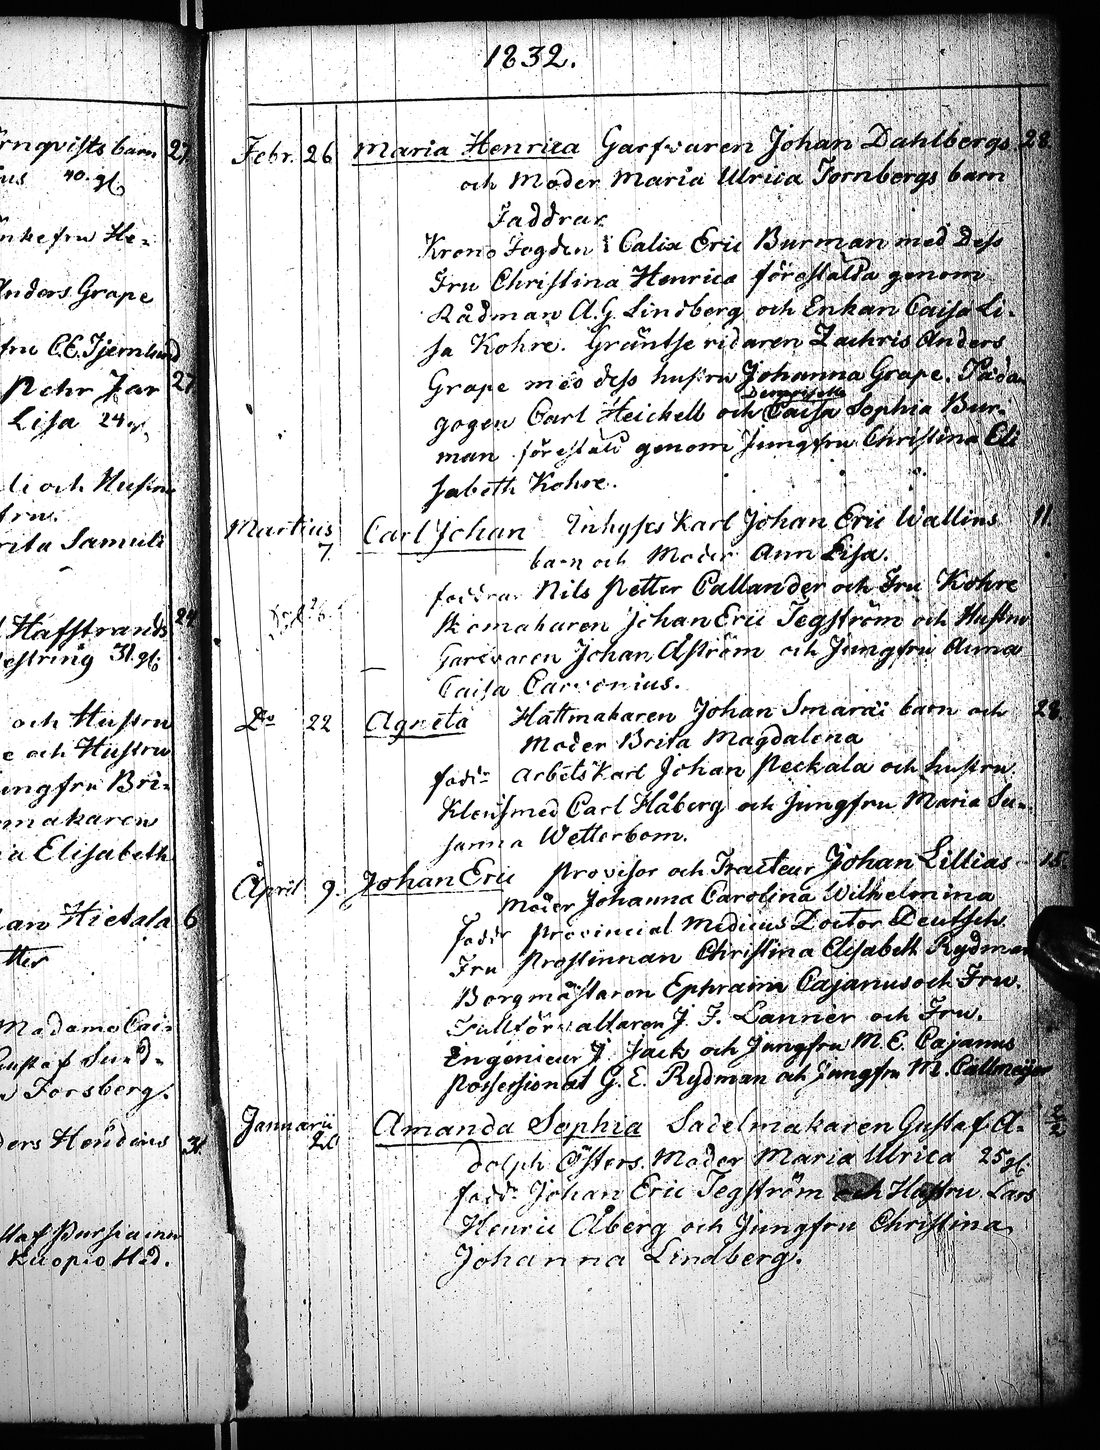 rnqvists barn 27.
40. gl.
enkefru He-
Anders Grape
fru C.E. Tjernlund
Pehr Jar 27
Lisa 24
li och Hustru
fru.
rita Samuels
Hafstrands 24
31. gl.
och Hustru
e och Hustru
ungfru Bri-
makaren
ia Elisabeth
an Hietala 6
tter
Madame Cai-
Gustaf Sund-
Forsberg.
ders Hendrics 31.
Kuopio Häd.
1832.
Febr. 26 Maria Henrica Garfvaren Johan Dahlbergs 28.
och Moder Maria Ulrica Tornbergs barn
Faddrar
Krono Fogden i Calix Eric Burman med Dess
Fru Christina Henrica föreställda genom
Rådman A.G. Lindberg och Enkan Caisa Li-
sa Kohre. Gräntse ridaren Zachris Anders
Grape med dess hustru Johanna Grape. Päda
Demoiselle
gogen Carl Heickell och Caisa Sophia Bur-
man föreställd genom Jungfru Christina Eli
sabeth Kohre.
Martius 7. Carl Johan Inhyses Karl Johan Eric Wallins 11.
barn och Moder Ann Lisa.
faddrar Nils Petter Callander och Fru Kohre
Skomakaren Johan Eric Tegström och Hustru
Garfvaren Johan Åström och Jungfru Anna
Caisa Carvonius.
Do 22 Agneta Hattmakaren Johan Smarai barn och 28.
Moder Brita Magdalena
fadd: Arbets Karl Johan Peckala och hustru.
Klensmed Carl Håberg och Jungfru Maria Su-
sanna Wetterbom.
April 9. Johan Eric Provisor och Tracteur Johan Lillias 15.
Moder Johanna Carolina Wilhelmina
Fadd: Provincial Medicus Doctor Deutsch.
Fru Prostinnan Christina Elisabeth Rydman
Borgmästaren Ephraim Cajanus och Fru.
Tullförvaltaren J. F. Lanner och Fru.
Ingenieur J. Jack och Jungfru M.E. Cajanus
Possessionat G.E. Rydman och Jungfru M. Callmeijer
Januarii 20 Amanda Sophia Sadelmakaren Gustaf A- 2/2
dolph Östers. Moder Maria Ulrica 25 gl.
fadd: Johan Eric Tegström och Hustru. Lars
Henric Åberg och Jungfru Christina
Johanna Lindberg.